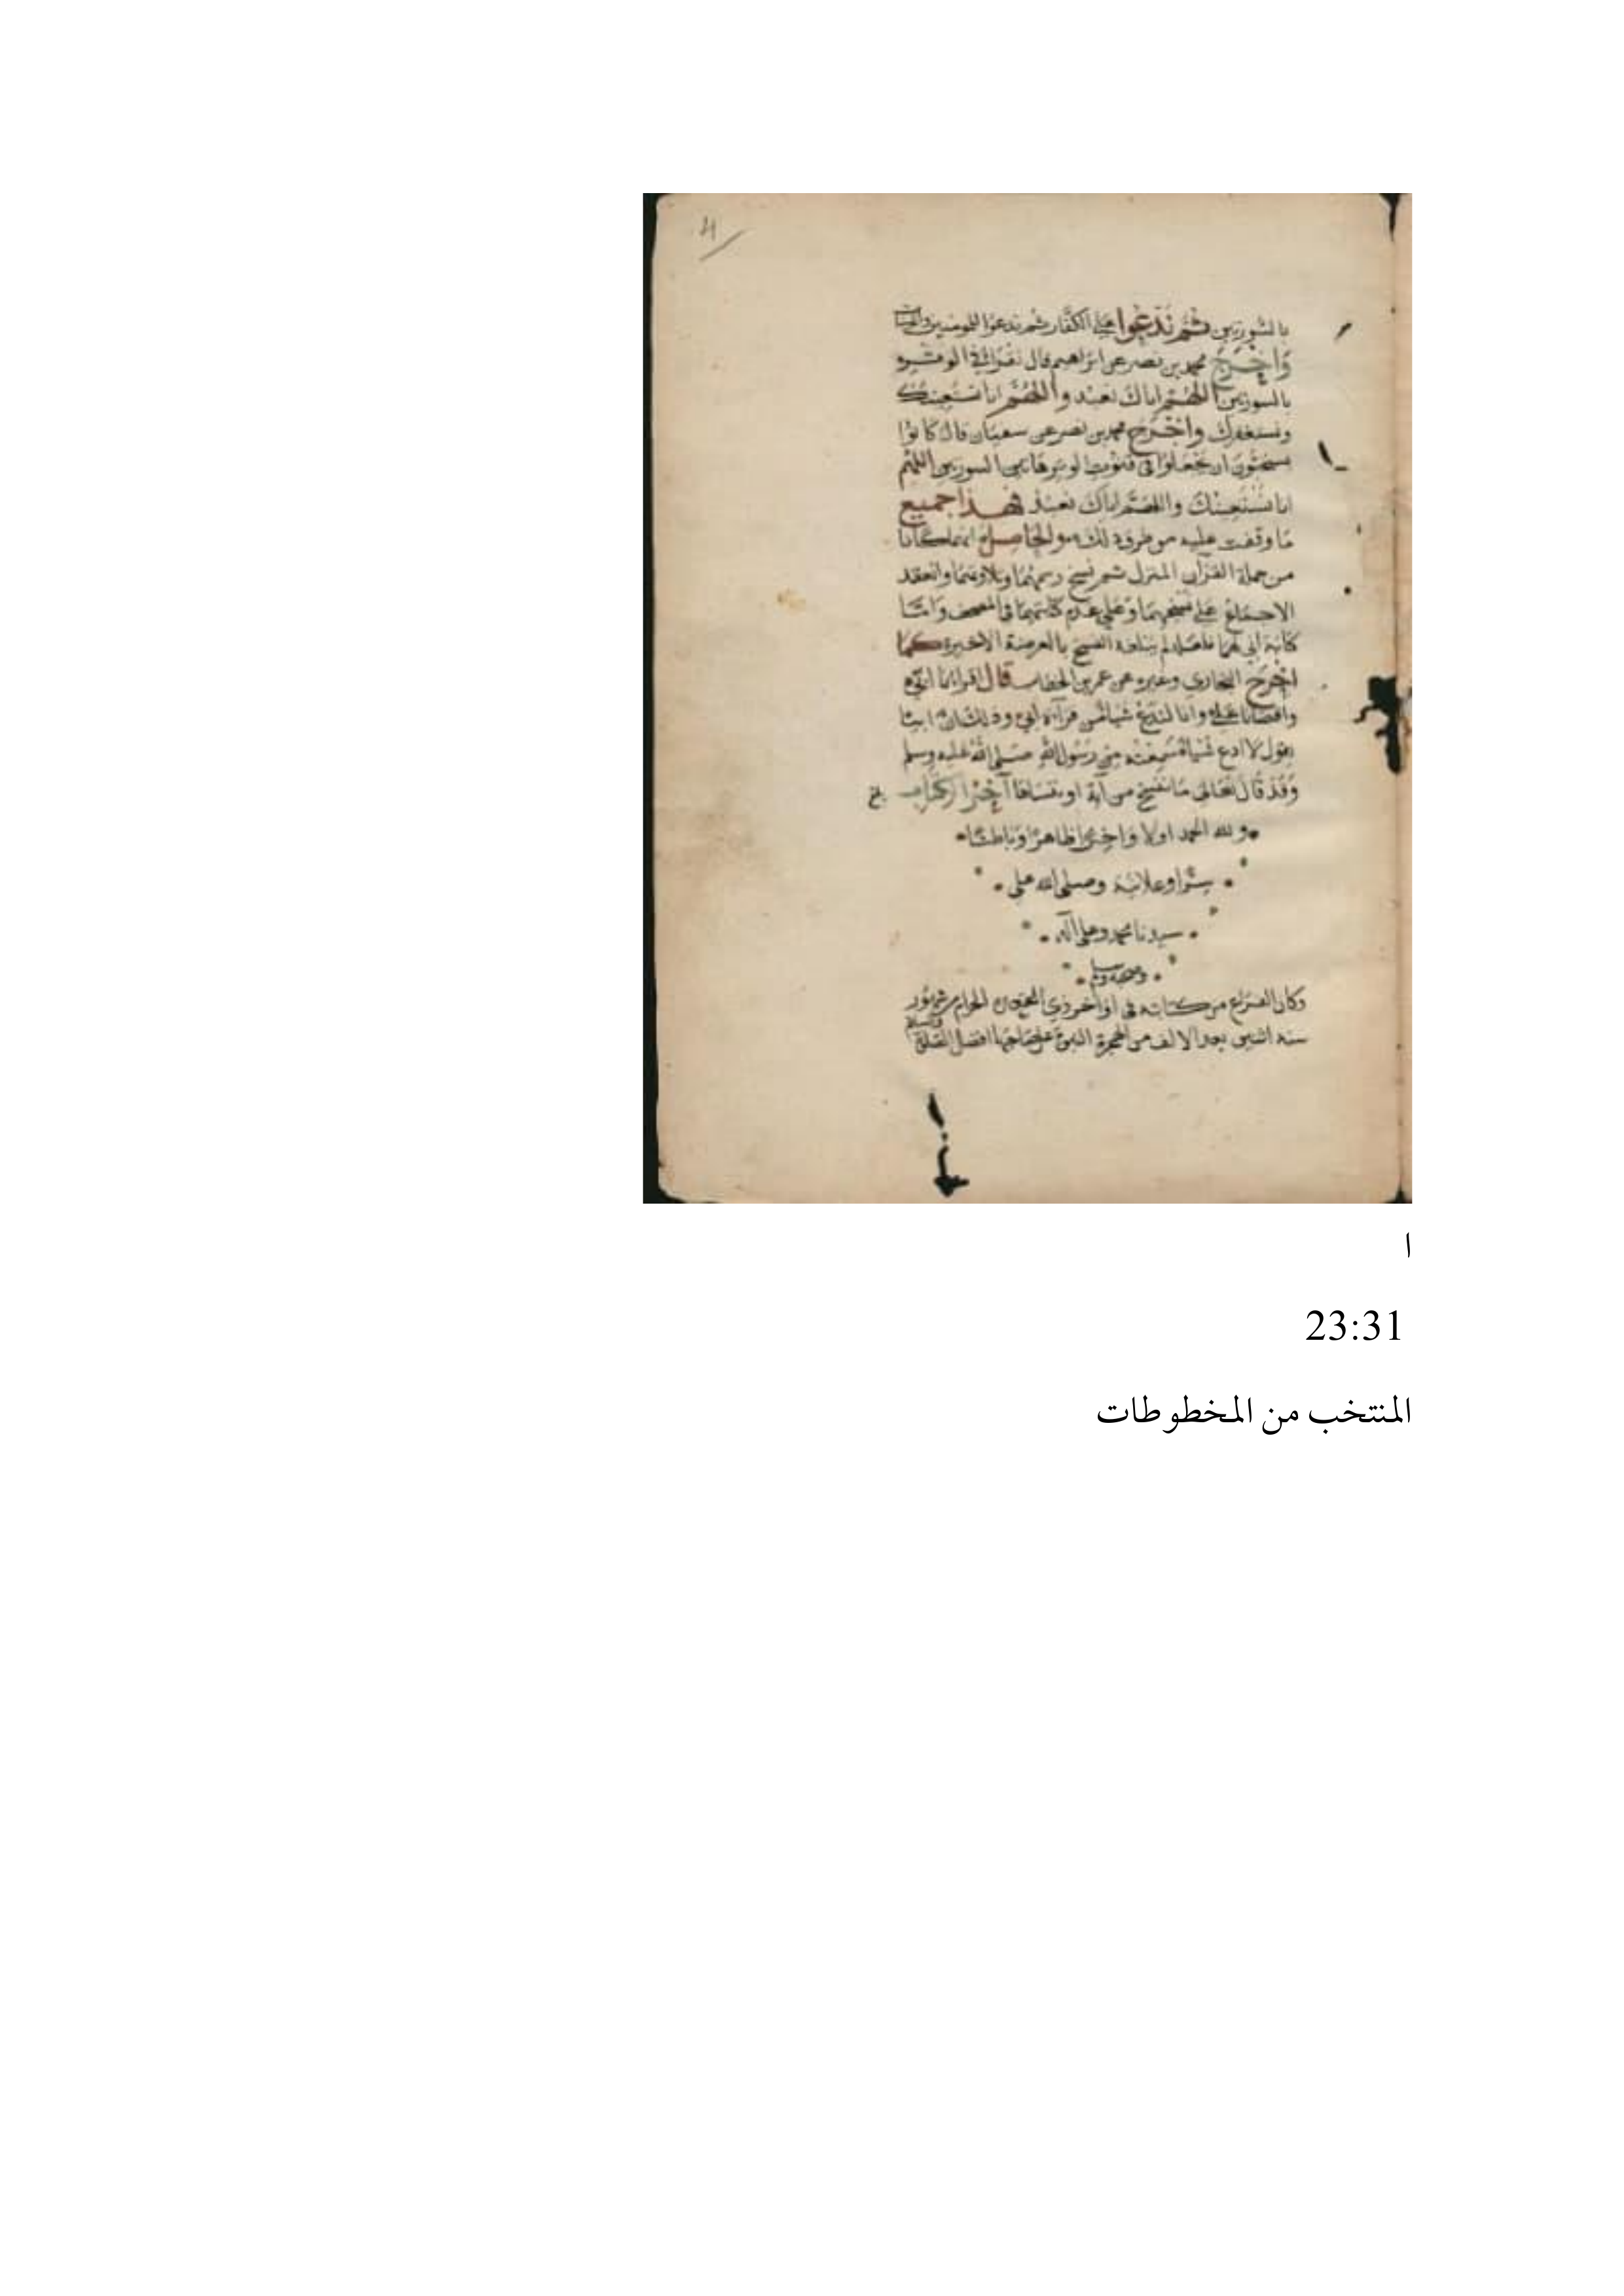 4
بالسورتين ثم ندعوا على الكفار ثم ندعوا للمومنين والمومنات
وَاخرَجَ محمد بن نصر عن ابراهيم قال نقرأ في الوتر
بالسورتين اللهم اياك نعبد واللهم انا نستعينك
ونستغفرك واخرج محمد بن نصر عن سفيان قال كانوا
يستحبون ان يجعلوا في قنوت الوتر هاتين السورتين اللهم
انا نستعينك واللهم اياك نعبد فهذا جميع
ما وقفت عليه من طرق ذلك والحاصل انهما كانا
من جملة القرآن المنزل ثم نسخ رسمهما وتلاوتهما وانعقد
الاجماع على نسخهما وعلى عدم كتابتهما في المصحف وامّا
كتابة ابي لهما لم النسخ بالعرضة الاخيرة كما
اخرج البخاري وغيره عن عمر بن الخطاب قال اقرانا ابيّ
واقضانا علي وانا لندع شيا من قراءة ابي وذلك ان ابيا
يقول لا ادع شيا سمعته من رسول الله صلى الله عليه وسلم
وَقَد قال تعالى ما ننسخ من آية او ننساها آخر الكتاب
ولله الحمد اولا واخرا ظاهرا وباطنا
سرا وعلانية وصلى الله على
سيدنا محمد وعلى آله
وصحبه وسلم
وكان الفراغ من كتابته في اواخر ذي الحرام من شهور
سنة اثنين بعد الالف من الهجرة النبوية على صاحبها افضل الصلاة والسلام
ا
23:31
المنتخب من المخطوطات